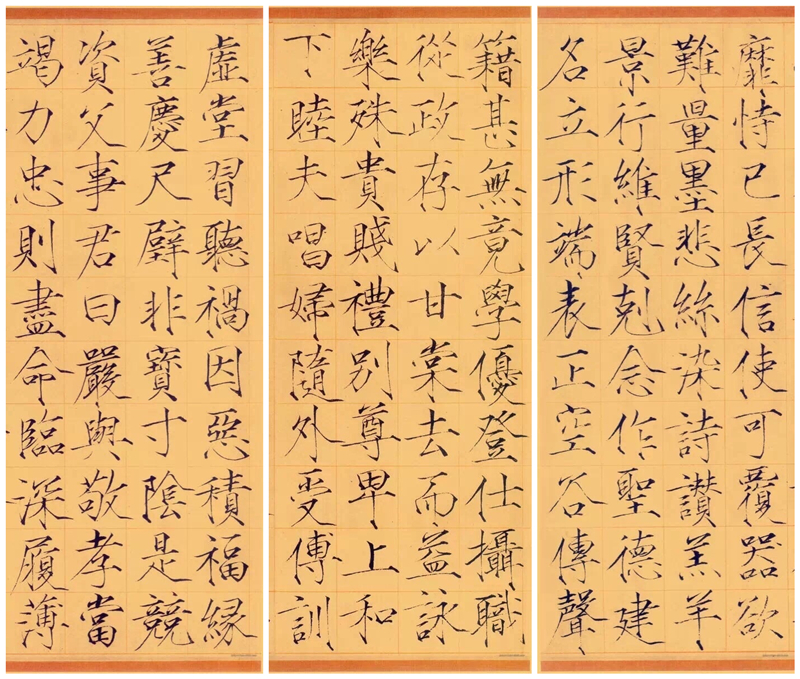 靡恃己長信使可覆器欲
難量墨悲絲染詩讚羔羊
景行維賢剋念作聖德建
名立形端表正空谷傳聲
籍甚無竟學優登仕攝職
從政存以甘棠去而益詠
樂殊貴賤禮別尊卑上和
下睦夫唱婦隨外受傅訓
虛堂習聽禍因惡積福緣
善慶尺璧非寶寸陰是競
資父事君曰嚴與敬孝當
竭力忠則盡命臨深履薄